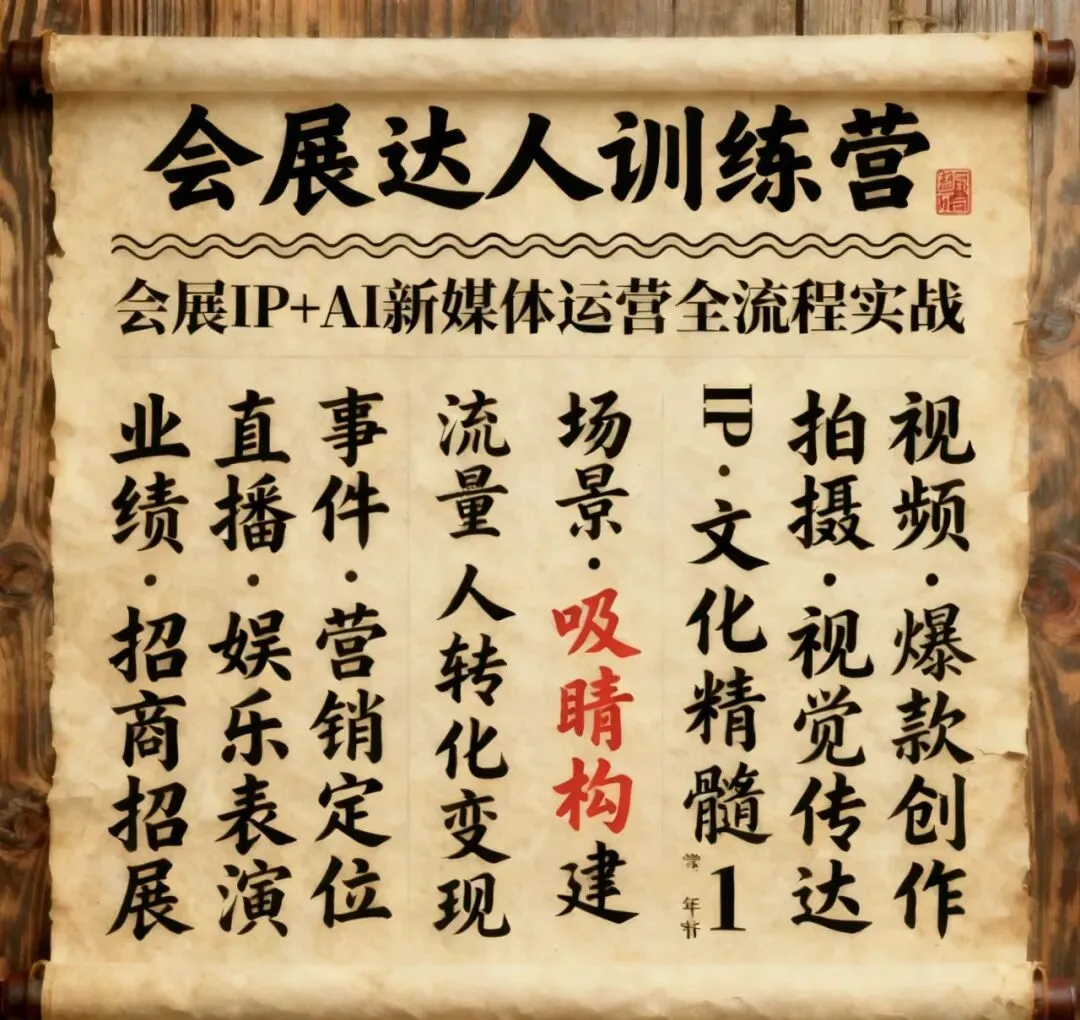 会展达人训练营
会展IP+AI新媒体运营全流程实战
视频·爆款创作
拍摄·视觉传达
IP·文化精髓1
场景·吸睛构建
流量人转化变现
事件·营销定位
直播·娱乐表演
业绩·招商招展